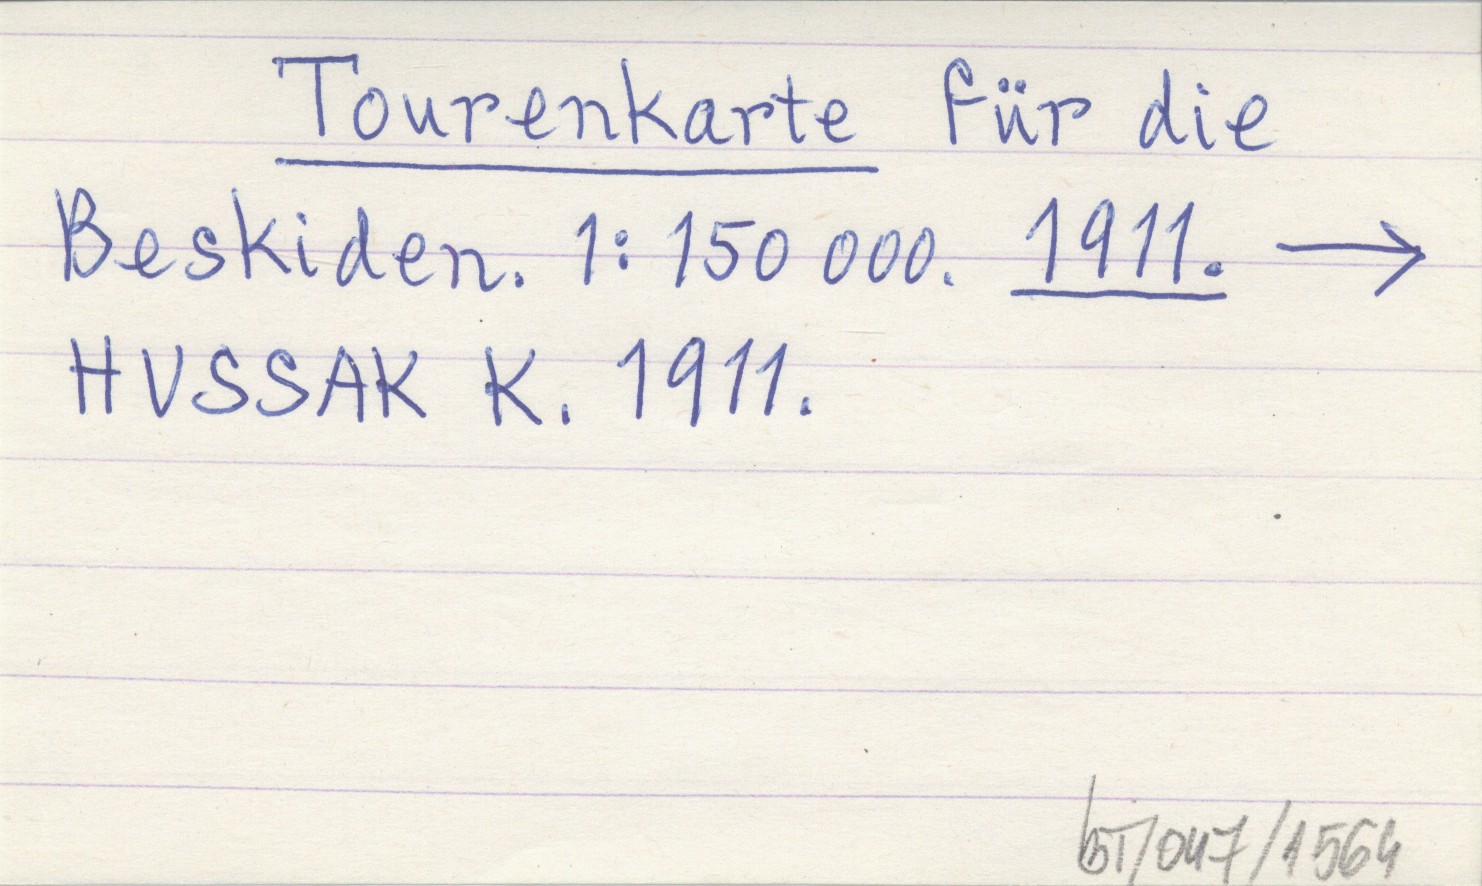 Tourenkarte für die
Beskiden. 1:150 000. 1911. →
HUSSAK K. 1911.
/047/1564